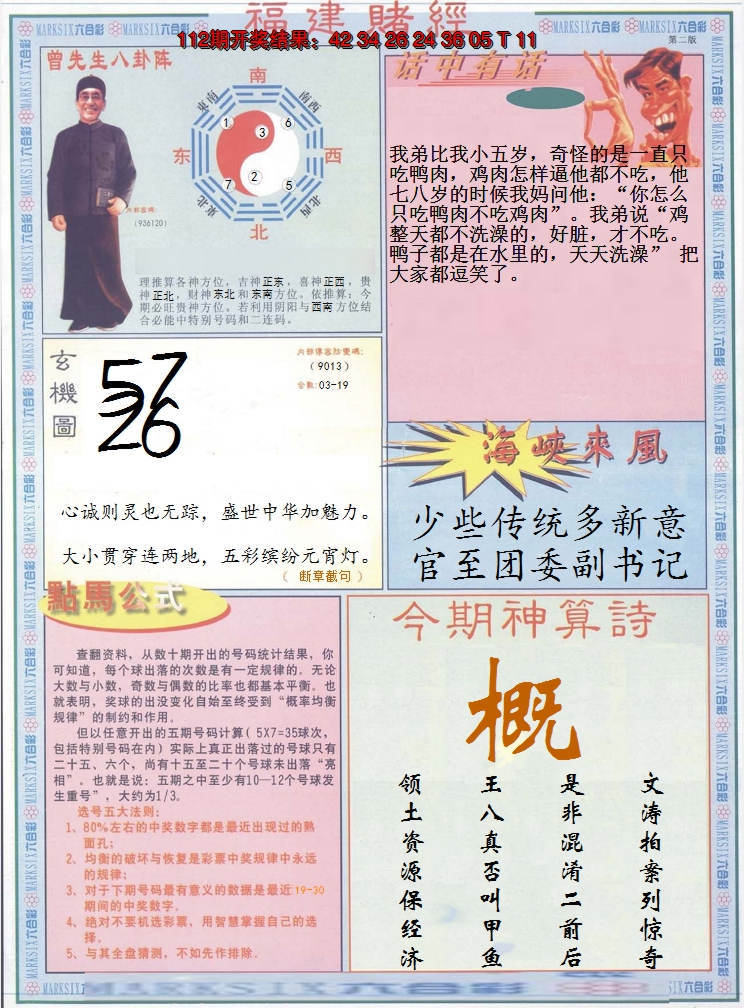 福建賭經
112期开奖结果：42 34 26 24 36 05 T 11
MARKSIX六合彩
第二版
曾先生八卦阵
南
东南
西南
东
西
东北
西北
北
1
3
6
7
2
5
内部密碼:
(936120)
理推算各神方位，吉神正东，喜神正西，贵
神正北，财神东北和东南方位。依推算：今
期必旺贵神方位。若利用阴阳与西南方位结
合必能中特别号码和二连码。
话中有话
我弟比我小五岁，奇怪的是一直只
吃鸭肉，鸡肉怎样逼他都不吃，他
七八岁的时候我妈问他：“你怎么
只吃鸭肉不吃鸡肉”。我弟说“鸡
整天都不洗澡的，好脏，才不吃。
鸭子都是在水里的，天天洗澡” 把
大家都逗笑了。
玄機圖
57
26
(9013)
合数:03-19
心诚则灵也无踪，盛世中华加魅力。
大小贯穿连两地，五彩缤纷元宵灯。
（ 断章截句 ）
海峽來風
少些传统多新意
官至团委副书记
點馬公式
查翻资料，从数十期开出的号码统计结果，你
可知道，每个球出落的次数是有一定规律的。无论
大数与小数，奇数与偶数的比率也都基本平衡。也
就表明，奖球的出没变化自始至终受到“概率均衡
规律”的制约和作用。
但以任意开出的五期号码计算( 5X7=35球次，
包括特别号码在内) 实际上真正出落过的号球只有
二十五、六个，尚有十五至二十个号球未出落“亮
相”。也就是说：五期之中至少有10—12个号球发
生重号”，大约为1/3。
选号五大法则:
1、80%左右的中奖数字都是最近出现过的熟
面孔；
2、均衡的破坏与恢复是彩票中奖规律中永远
的规律；
3、对于下期号码最有意义的数据是最近19-30
期间的中奖数字。
4、绝对不要机选彩票，用智慧掌握自己的选
择。
5、与其全盘猜测，不如先作排除。
今期神算詩
概
文涛拍案列惊奇
是非混淆二前后
王八真否叫甲鱼
领土资源保经济